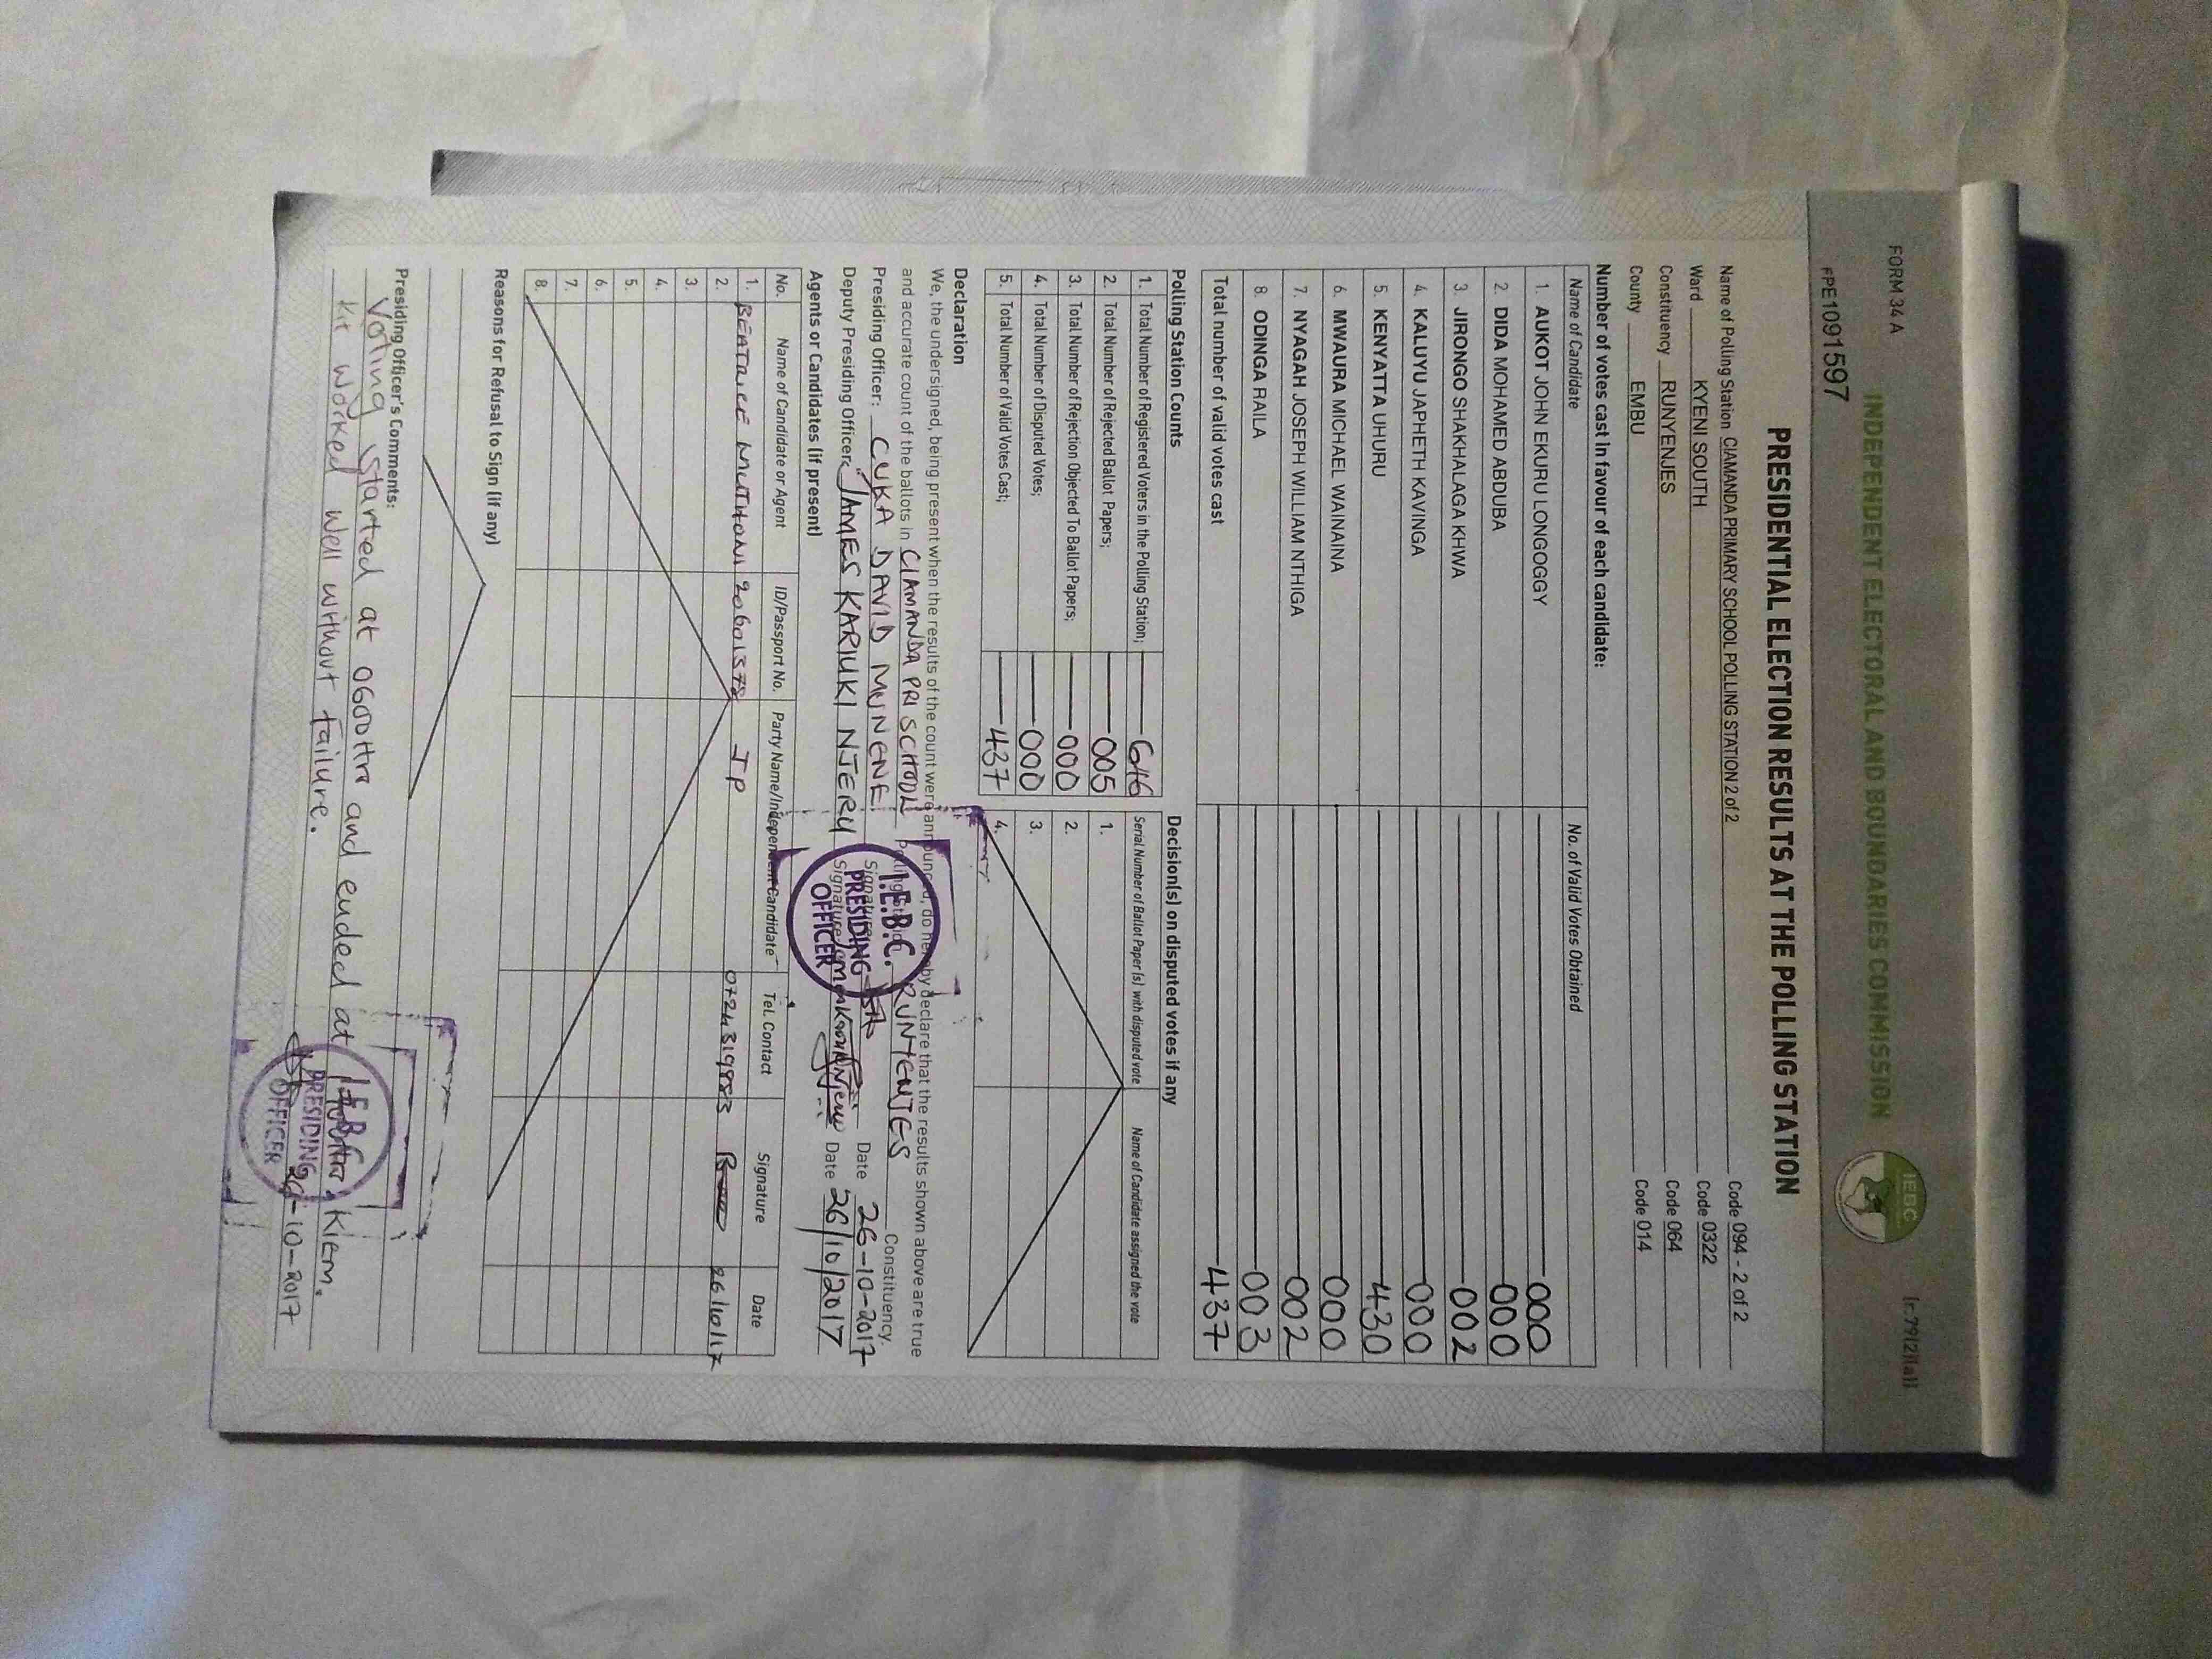 FORM 34 A
[r.79(2)(a)]
INDEPENDENT ELECTORAL AND BOUNDARIES COMMISSION
IEBC
FPE1091597
PRESIDENTIAL ELECTION RESULTS AT THE POLLING STATION
Name of Polling Station CIAMANDA PRIMARY SCHOOL POLLING STATION 2 of 2 Code 094 - 2 of 2
Ward KYENI SOUTH Code 0322
Constituency RUNYENJES Code 064
County EMBU Code 014
Number of votes cast in favour of each candidate:
Name of Candidate No. of Valid Votes Obtained
1. AUKOT JOHN EKURU LONGOGGY 000
2. DIDA MOHAMED ABDUBA 000
3. JIRONGO SHAKHALAGA KHWA 002
4. KALUYU JAPHETH KAVINGA 000
5. KENYATTA UHURU 430
6. MWAURA MICHAEL WAINAINA 000
7. NYAGAH JOSEPH WILLIAM NTHIGA 002
8. ODINGA RAILA 003
Total number of valid votes cast 437
Polling Station Counts
1. Total Number of Registered Voters in the Polling Station; 646
2. Total Number of Rejected Ballot Papers; 005
3. Total Number of Rejection Objected To Ballot Papers; 000
4. Total Number of Disputed Votes; 000
5. Total Number of Valid Votes Cast; 437
Decision(s) on disputed votes if any
Serial Number of Ballot Paper (s) with disputed vote Name of Candidate assigned the vote
1.
2.
3.
4.
Declaration
We, the undersigned, being present when the results of the count were announced, do hereby declare that the results shown above are true
and accurate count of the ballots in CIAMANDA PRI SCHOOL Polling Station RUNYENJES Constituency.
Presiding Officer: CUKA DAVID MUNENE Signature Date 26-10-2017
Deputy Presiding Officer: JAMES KARIUKI NJERU Signature Date 26/10/2017
I.E.B.C.
PRESIDING
OFFICER
Agents or Candidates (if present)
No. Name of Candidate or Agent ID/Passport No. Party Name/Independent Candidate Tel. Contact Signature Date
1. BEATRICE MUTHONI 20601372 JP 0724319983 26/10/17
2.
3.
4.
5.
6.
7.
8.
Reasons for Refusal to Sign (if any)
Presiding Officer's Comments:
Voting started at 0600Hrs and ended at
Kit worked well without failure.
I.E.B.C.
PRESIDING
OFFICER
26-10-2017